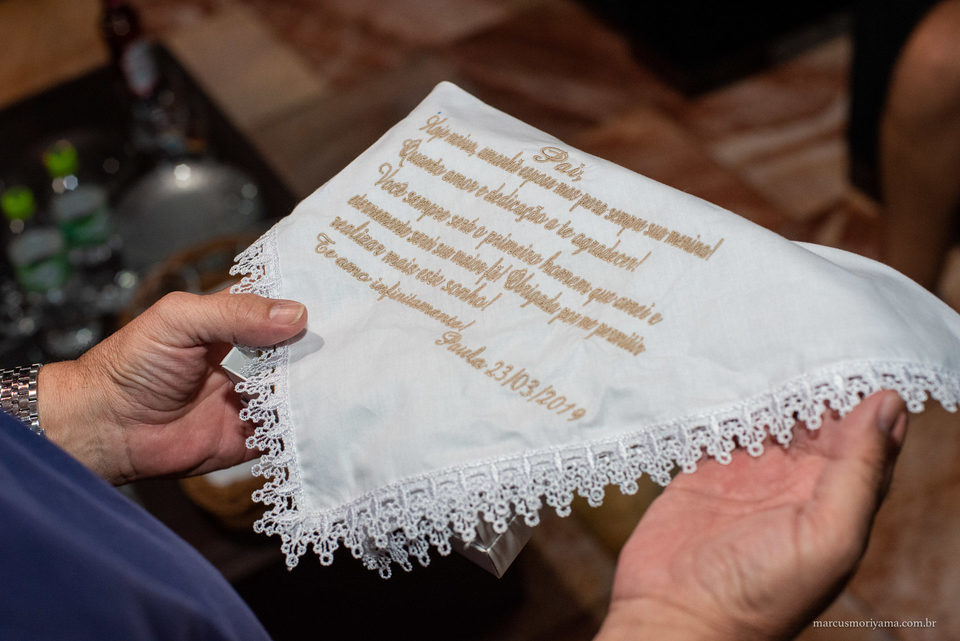 Pai,
Hoje noiva, amanhã esposa mas para sempre sua menina!
Quanto amor e dedicação a te agradecer!
Você sempre será o primeiro homem que amei e
eternamente serei sua maior fã! Obrigada por me permitir
realizar mais este sonho!
Te amo infinitamente!
23/03/2019
marcusmoriyama.com.br